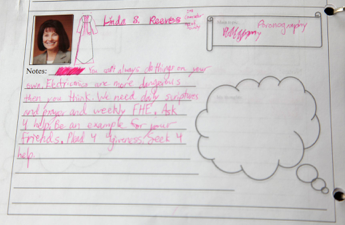 Linda S. Reeves
Pornography
Notes: You can't always do things on your
own. Electronics are more dangerous
then you think. We need daily scripture
and prayer and weekly FHE. Ask
4 help. Be an example for your
friends. Plead 4 giveness. Seek 4
help.